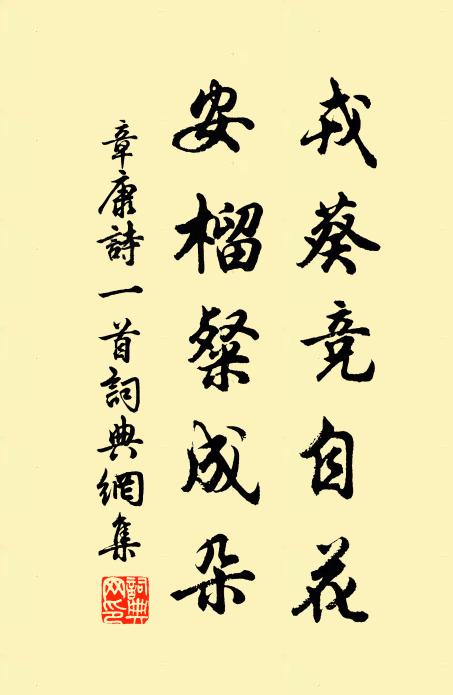 戎葵竞自花
安榴粲成朵
章康詩一首詞典網集
詞典
网印